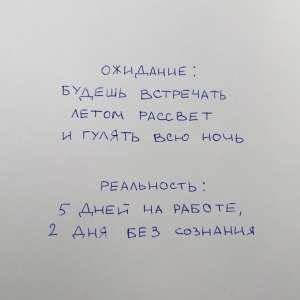 ОЖИДАНИЕ:
БУДЕШЬ ВСТРЕЧАТЬ
ЛЕТОМ РАССВЕТ
И ГУЛЯТЬ ВСЮ НОЧЬ
РЕАЛЬНОСТЬ:
5 ДНЕЙ НА РАБОТЕ,
2 ДНЯ БЕЗ СОЗНАНИЯ